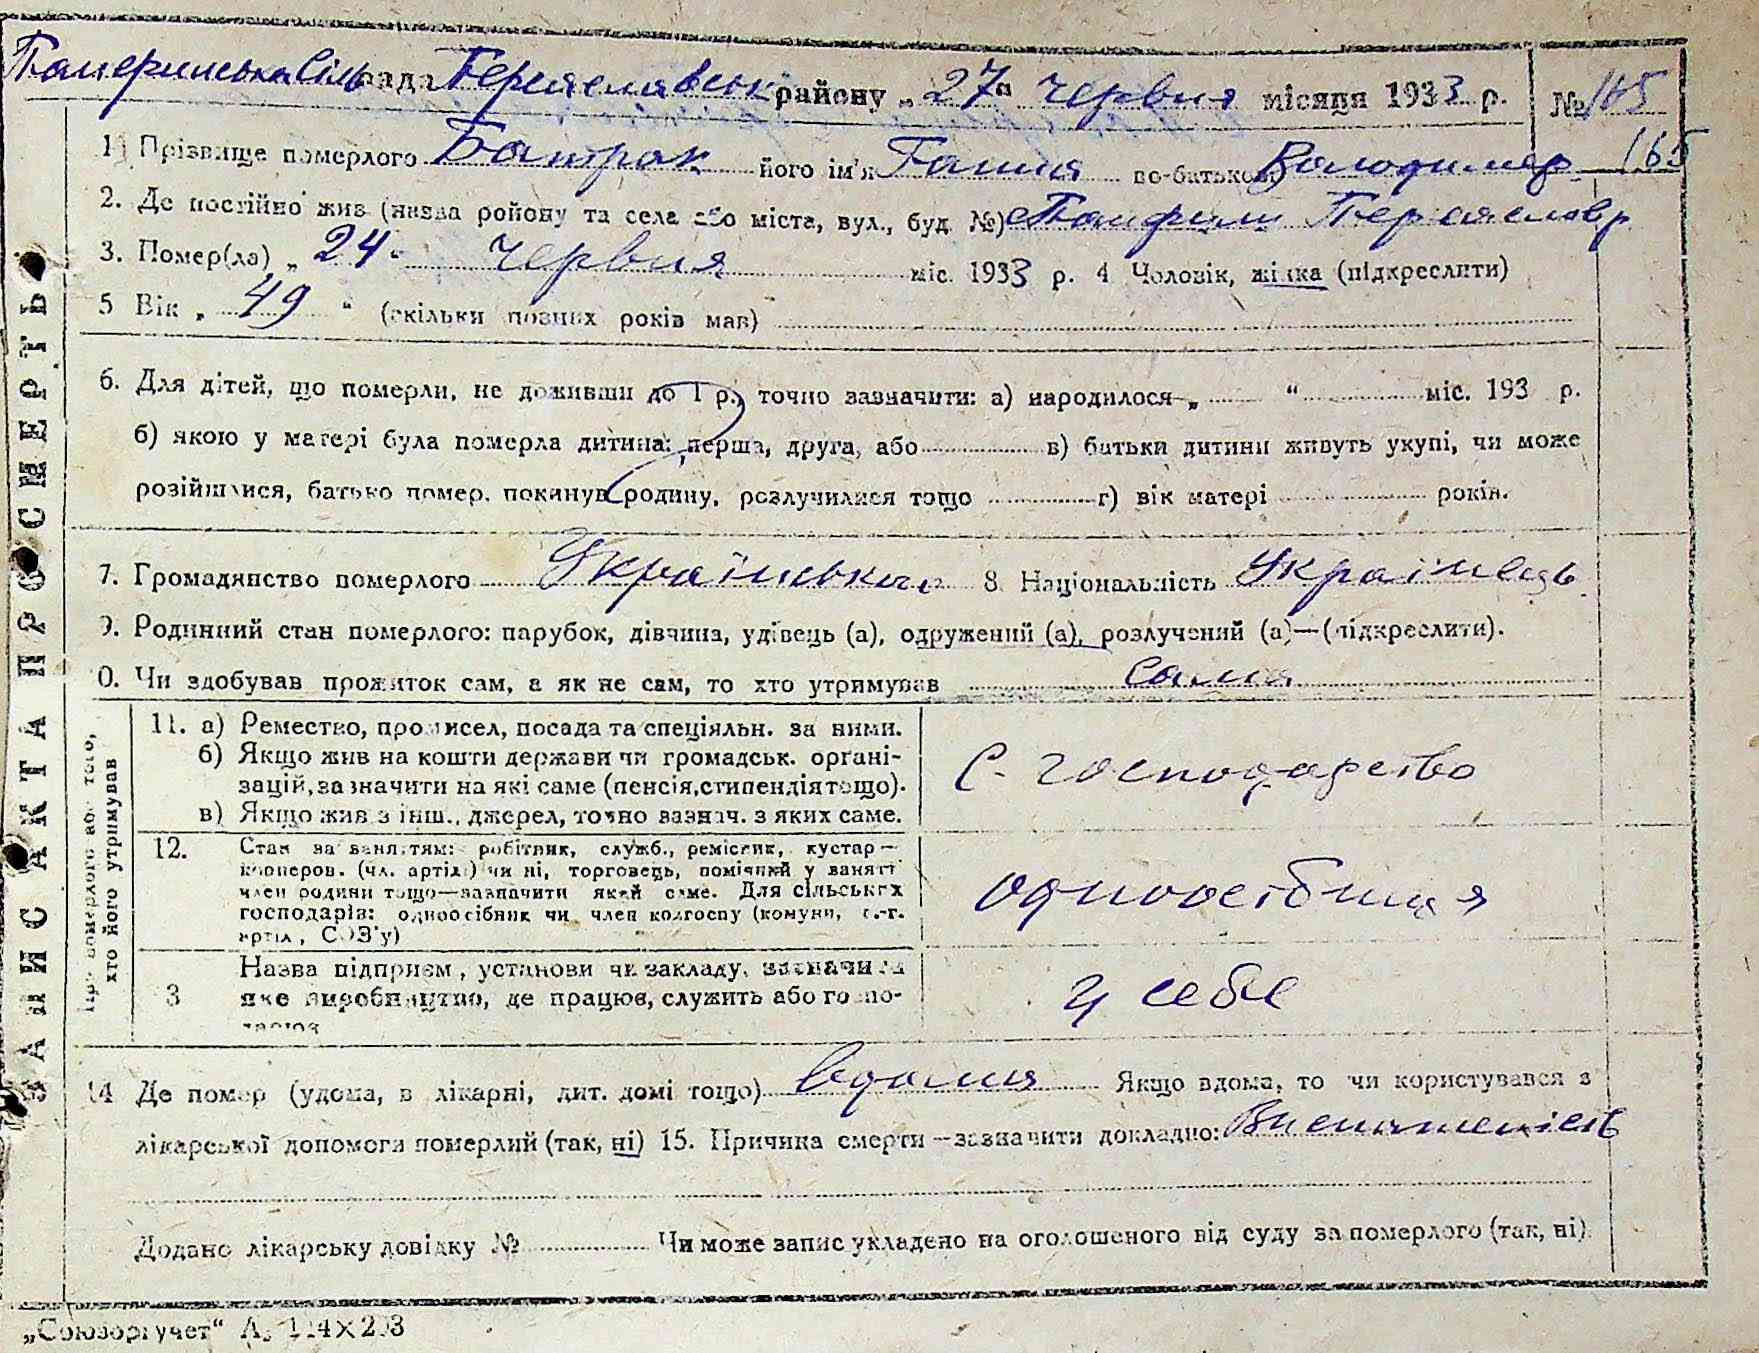 рада Переяславськ району „27“ червня місяця 1933 р. № 165
1) Прізвище померлого Батрак його ім'я Ганна по-батькові Володимер 165
2. Де постійно жив (назва району та села або міста, вул., буд. №) Панфили Переяслав р
3. Помер(ла) „24“ червня міс. 1933 р. 4 Чоловік, жінка (підкреслити)
5 Вік „49“ (скільки повних років мав)
6. Для дітей, що померли, не доживши до 1 р., точно зазначити: а) народилося „ “ міс. 193 р.
б) якою у матері була померла дитина: перша, друга, або в) батьки дитини живуть укупі, чи може
розійшлися, батько помер, покинув родину, розлучилися тощо г) вік матері років.
7. Громадянство померлого Українська 8. Національність Українець
9. Родинний стан померлого: парубок, дівчина, удівець (а), одружений (а), розлучений (а)—(підкреслити).
0. Чи здобував прожиток сам, а як не сам, то хто утримував сама
Про померлого або того,
хто його утримував
11. а) Ремество, промисел, посада та спеціяльн. за ними.
б) Якщо жив на кошти держави чи громадськ. органі-
зацій, зазначити на які саме (пенсія, стипендія тощо).
в) Якщо жив з інш., джерел, точно зазнач. з яких саме.
С. господарство
12. Стан за заняттям: робітник, служб., ремісник, кустар—
кооперов. (чл. артілі) чи ні, торговець, помічний у занятті
член родини тощо—зазначити який саме. Для сільських
господарів: одноосібник чи член колгоспу (комуни, с.-г.
артіл, СОЗ'у)
одноосібниця
3 Назва підприєм, установи чи закладу, зазначити
яке виробництво, де працює, служить або госпо-
у себе
14 Де помер (удома, в лікарні, дит. домі тощо) вдома Якщо вдома, то чи користувався з
лікарської допомоги померлий (так, ні) 15. Причина смерти—зазначити докладно: Виснаженість
Додано лікарську довідку № Чи може запис укладено на оголошеного від суду за померлого (так, ні)
ЗАПИС АКТА ПРО СМЕРТЬ
„Союзоргучет“